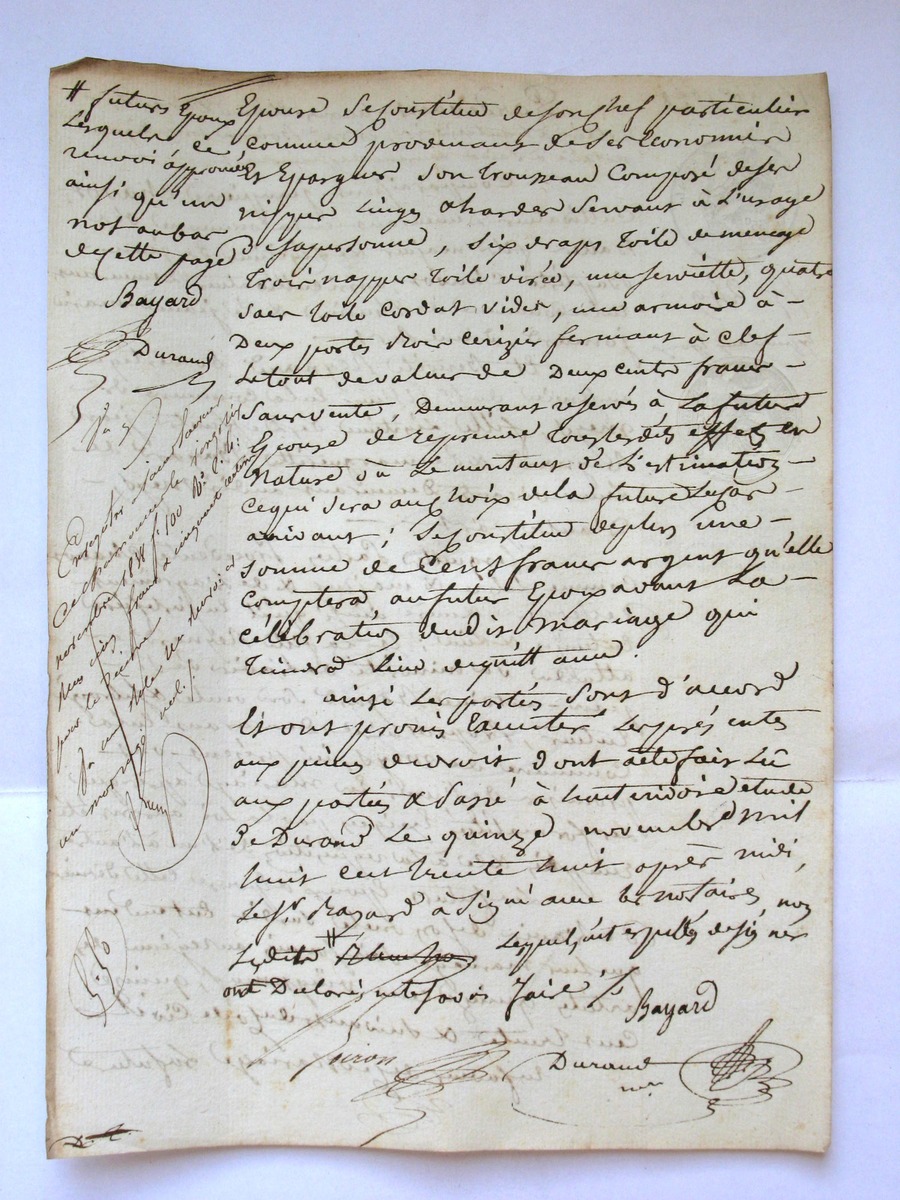 # futurs Epoux
Lesquels ce
renvoi approuvé
ainsi qu'un
mot au bas
de cette page
Bayard
Durand
Epouse se constitue de son chef particulier
comme provenant de ses Economies
Et Epargnes son trousseau composé de ses
nippes linges & hardes servant à l'usage
de sa personne, six draps toile de menage
trois nappes toile virée, une serviette, quatre
sacs toile cordat vides, une armoire à
Deux portes bois cerizier fermant à clef
Le tout de valeur de Deux cents francs
Sans vente, Demeurant réservé à La future
Epouse de reprendre tous lesdits effets en
Nature où Le montant de L'estimation
ce qui sera au choix de la future Le cas
arrivant; Se constitue de plus une
somme de Cent francs argent qu'elle
comptera au futur Epoux avant La
célébration dudit mariage qui
tiendra Lieu de quittance.
ainsi Les parties sont d'accord
Et ont promis Exécuter Les présentes
aux peines de droit dont acte fait Lû
aux parties & Passé à étude
De Durand Le quinze novembre Mil
huit cent trente huit après midi,
Le Sr Bayard a Signé avec les notaires, non
Lesdits # Lesquels, interpellés de signer
ont Déclaré ne le savoir faire
Bayard
Durand
nre
Enregistré
novembre 1838 fo 100
Reçu cinq francs & cinquante centimes
pour le décime